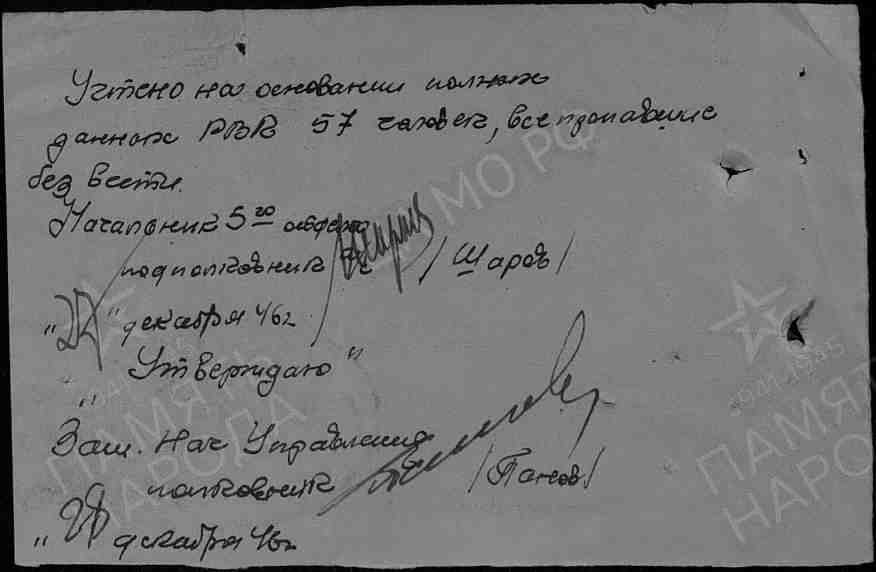 Учтено на основании полных
данных РВК 57 человек, все пропавшие
без вести.
Начальник 5го отдела
подполковник /Шаров/
"27" декабря 46г.
"Утверждаю"
Зам. Нач Управления
полковник /Панов/
"28" декабря 46г
МО РФ
ПАМЯТЬ
НАРОДА
1941-1945
ПАМЯТ
НАРО